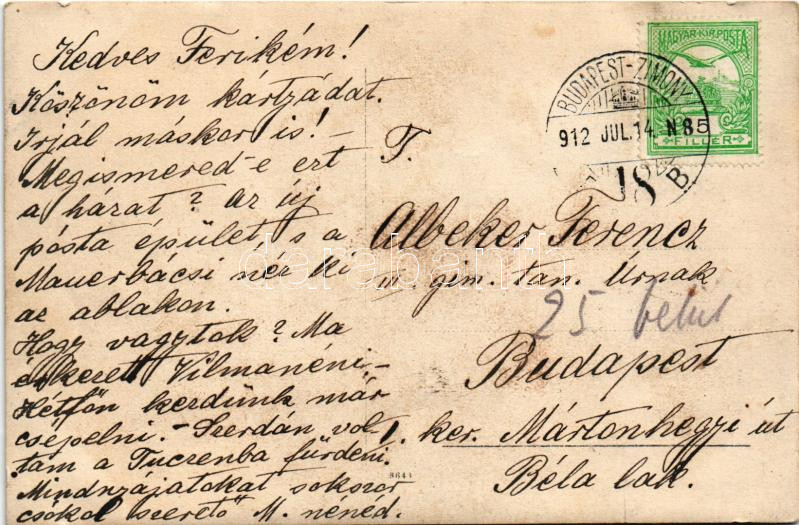 Kedves Ferikém!
Köszönöm kártzádat.
Irjál máskor is! –
Megismered-e ezt
a házat? az új
pósta épület, s a
Mauerbácsi néz ki
az ablakon.
Hogy vagytok? Ma
érkezett Vilmanéni, –
Hétfőn kezdünk már
csépelni. – Szerdán vol-
tam a Tuczenba fürdeni.
Mindnyájatokat sokszor
csókol szerető M. nénéd.
MAGYAR KIR. POSTA
5
FILLÉR
BUDAPEST-ZIMONY
912 JUL.14. N 8
18
B
T.
Albeker Ferencz
gim. tan. Úrnak
25 belül
Budapest
I. ker. Mártonhegyi út
Béla lak.
8641
darabanth